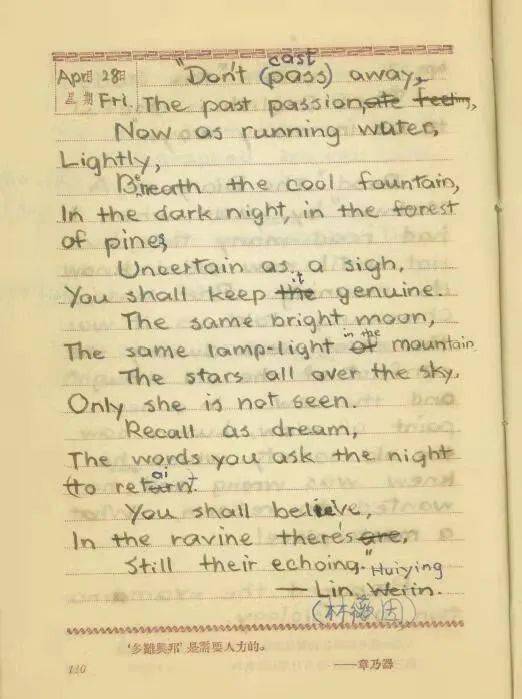 cast
April 28日 "Don't (pass) away,
星期 Fri. The past passion,ate feeling,
Now as running water,
Lightly,
Beneath the cool fountain,
In the dark night, in the forest
of pines,
Uncertain as a sigh,
it
You shall keep the genuine.
The same bright moon,
in the
The same lamp-light of mountain
The stars all over the sky,
Only she is not seen.
Recall as dream,
The words you ask the night
ai
(to return).
You shall believe,
In the ravine there's are,
Still their echoing."
Huiying
— Lin Weiin.
(林徽因)
'多難興邦'是需要人力的。
——章乃器
110